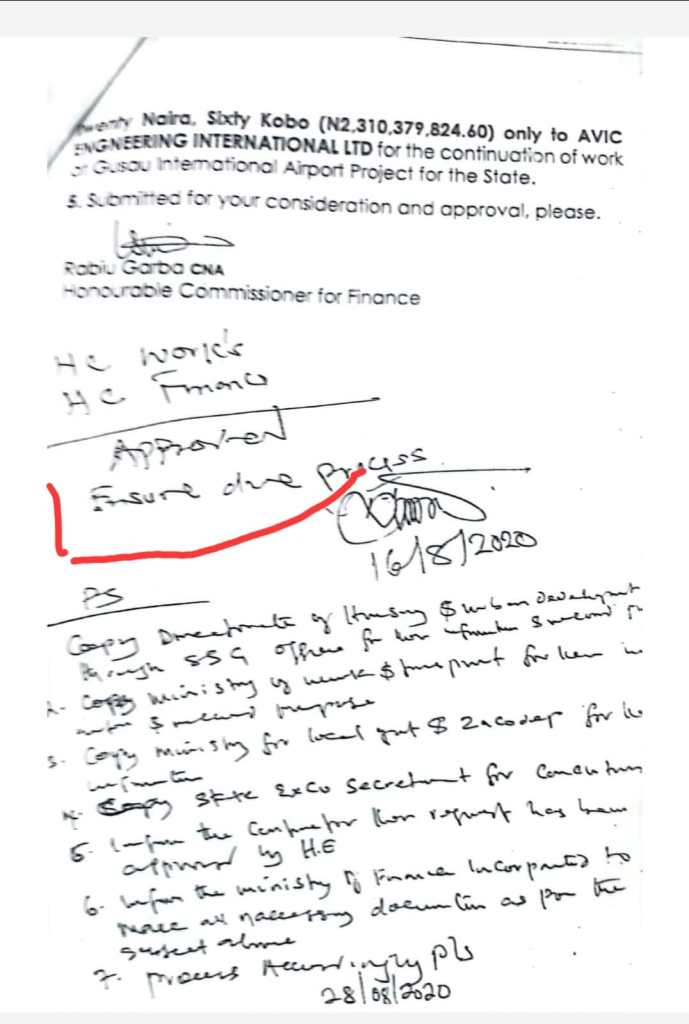 Twenty Naira, Sixty Kobo (N2,310,379,824.60) only to AVIC
ENGNEERING INTERNATIONAL LTD for the continuation of work
at Gusau International Airport Project for the State.
5. Submitted for your consideration and approval, please.
Rabiu Garba CNA
Honourable Commissioner for Finance
HC Works
HC Finance
Approved
Ensure due process
16/8/2020
PS
Copy Directorate of Housing & urban Development
through SSG office for
2. Copy ministry of work & transport for
& record purpose
3. Copy ministry for local govt & Zacodep for
4. Copy State Exco Secretariat for
5. Inform the Contractor request has been
approved by H.E
6. Inform the ministry of Finance Incorporated to
make all necessary as per the
subject above
7. Process Accordingly pls
28/08/2020